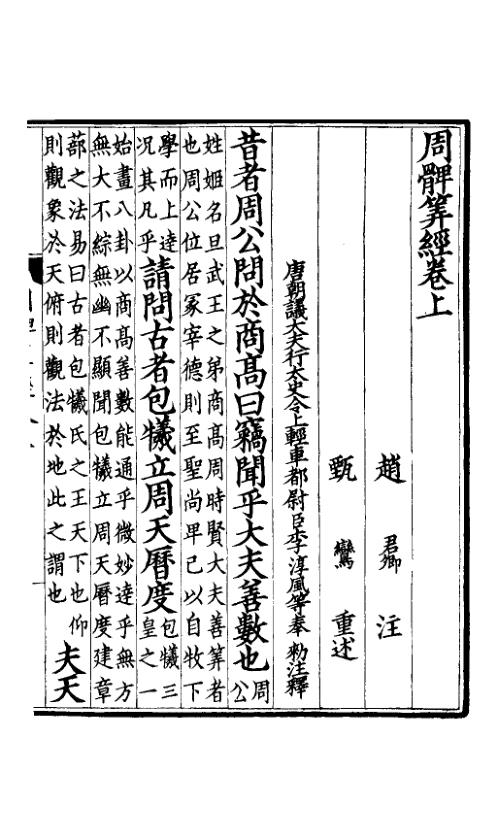 周髀筭經卷上
趙 君卿 注
甄 鸞 重述
唐朝議大夫行太史令上輕車都尉臣李淳風等奉 勑注釋
昔者周公問於商髙曰竊聞乎大夫善數也
周
公
姓姬名旦武王之弟商髙周時賢大夫善筭者
也周公位居冢宰德則至聖尚卑己以自牧下
學而上達
况其凡乎
請問古者包犧立周天曆度
包犧三
皇之一
始畫八卦以商髙善數能通乎微妙達乎無方
無大不綜無幽不顯聞包犧立周天曆度建章
蔀之法易曰古者包犧氏之王天下也仰
則觀象於天俯則觀法於地此之謂也
夫天